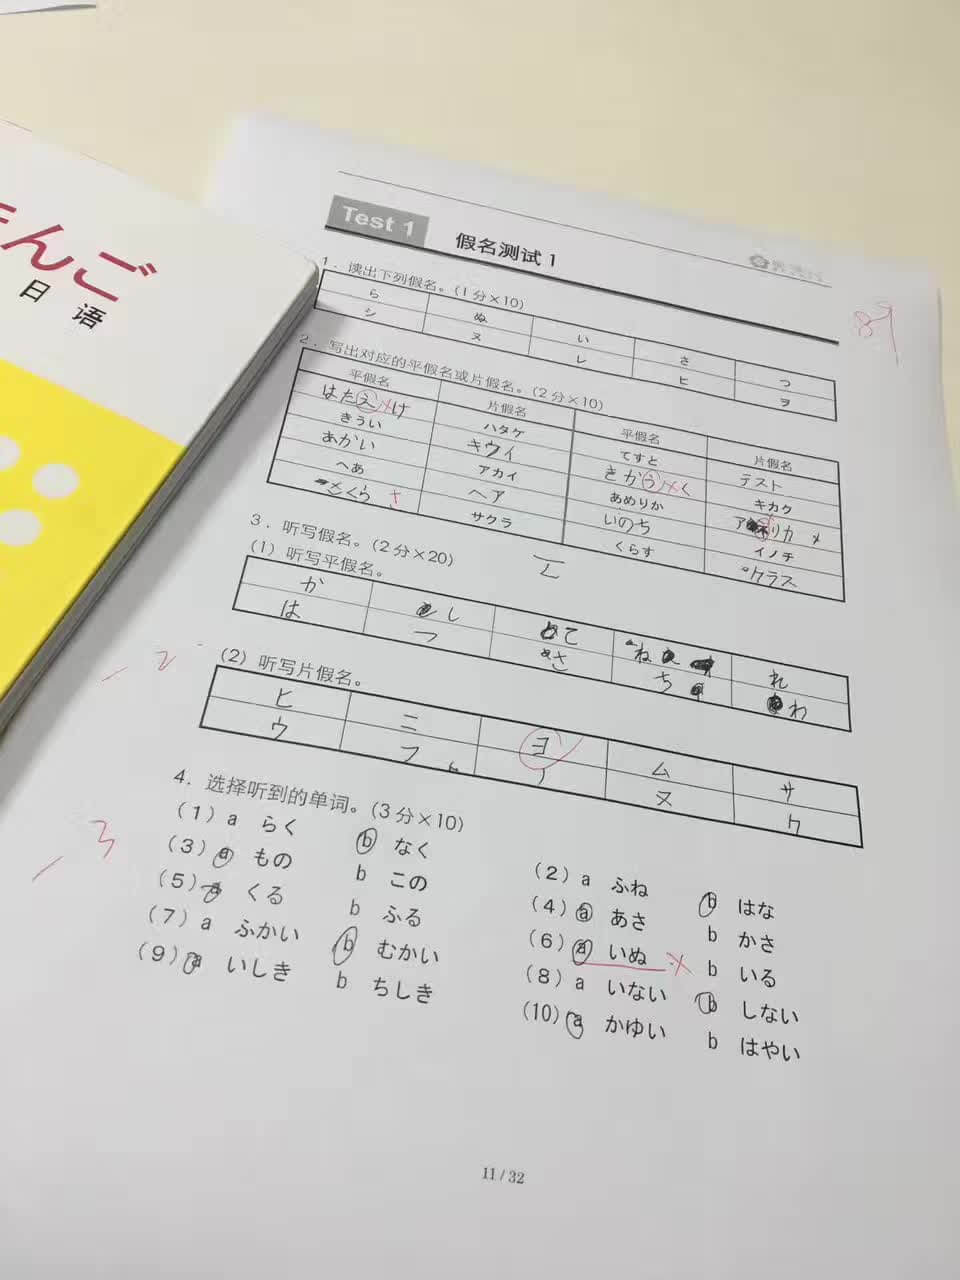 んご
日 语
Test 1 假名测试1
89
1. 读出下列假名。(1分×10)
ら ぬ い さ つ
シ ヌ レ ヒ ヲ
2. 写出对应的平假名或片假名。(2分×10)
平假名 片假名 平假名 片假名
はたえ×け ハタケ てすと テスト
きうい キウイ きかう×く キカク
あかい アカイ あめりか アリカ メ
へあ ヘア いのち イノチ
こくら さ サクラ くらす クラス
3. 听写假名。(2分×20)
(1) 听写平假名。
か し て ね れ
は つ さ ち わ
-2
(2) 听写片假名。
ヒ ニ ヨ ム サ
ウ フ ノ ヌ ケ
4. 选择听到的单词。(3分×10)
-3
(1) a らく b なく
(2) a ふね b はな
(3) a もの b この
(4) a あさ b かさ
(5) a くる b ふる
(6) a いぬ × b いる
(7) a ふかい b むかい
(8) a いない b しない
(9) a いしき b ちしき
(10) a かゆい b はやい
11 / 32